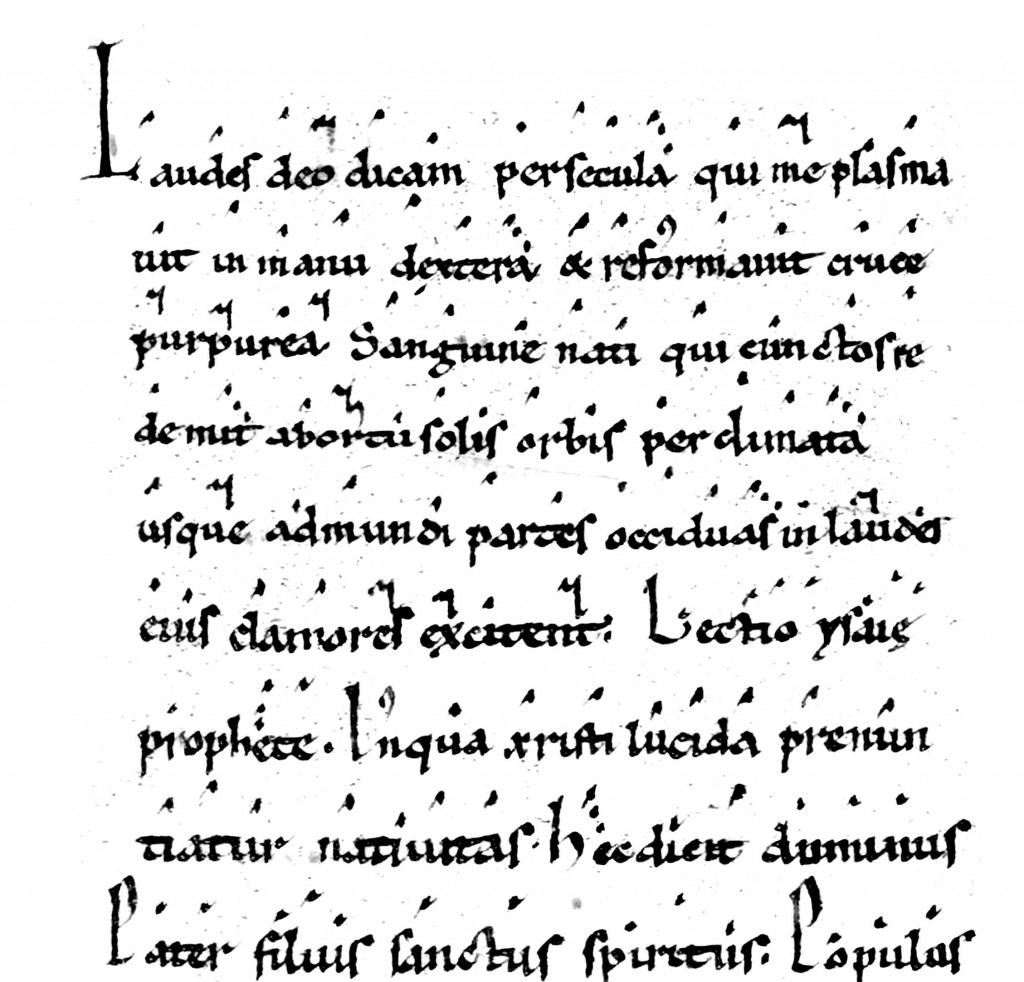 Laudes deo dicam per secula qui me plasma
uit in manu dextera & reformauit cruce
purpurea Sanguine nati qui cunctos re
demit abortu solis orbis per climata
usque admundi partes occiduas in laudes
eius clamores excitent: Lectio ysaię
prophete. Inqua xristi lucida prenun
tiatur natiuitas. Hec dicit dominus
Pater filius sanctus spiritus: Populus